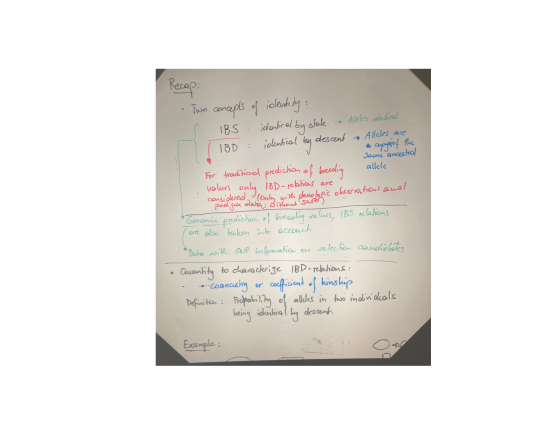 Recap:
• Two concepts of identity:
IBS : identical by state → Alleles identical
IBD : identical by descent → Alleles are
a copy of the
same ancestral
allele
For traditional prediction of breeding
values only IBD-relations are
considered, (Only with phenotypic observations and
pedigree data, without SNP)
Genomic prediction of breeding values, IBS relations
are also taken into account
Data with SNP information on selection candidates
• Quantity to characterise IBD-relations:
→ coancestry or coefficient of kinship
Definition: Probability of alleles in two individuals
being identical by descent.
Example: